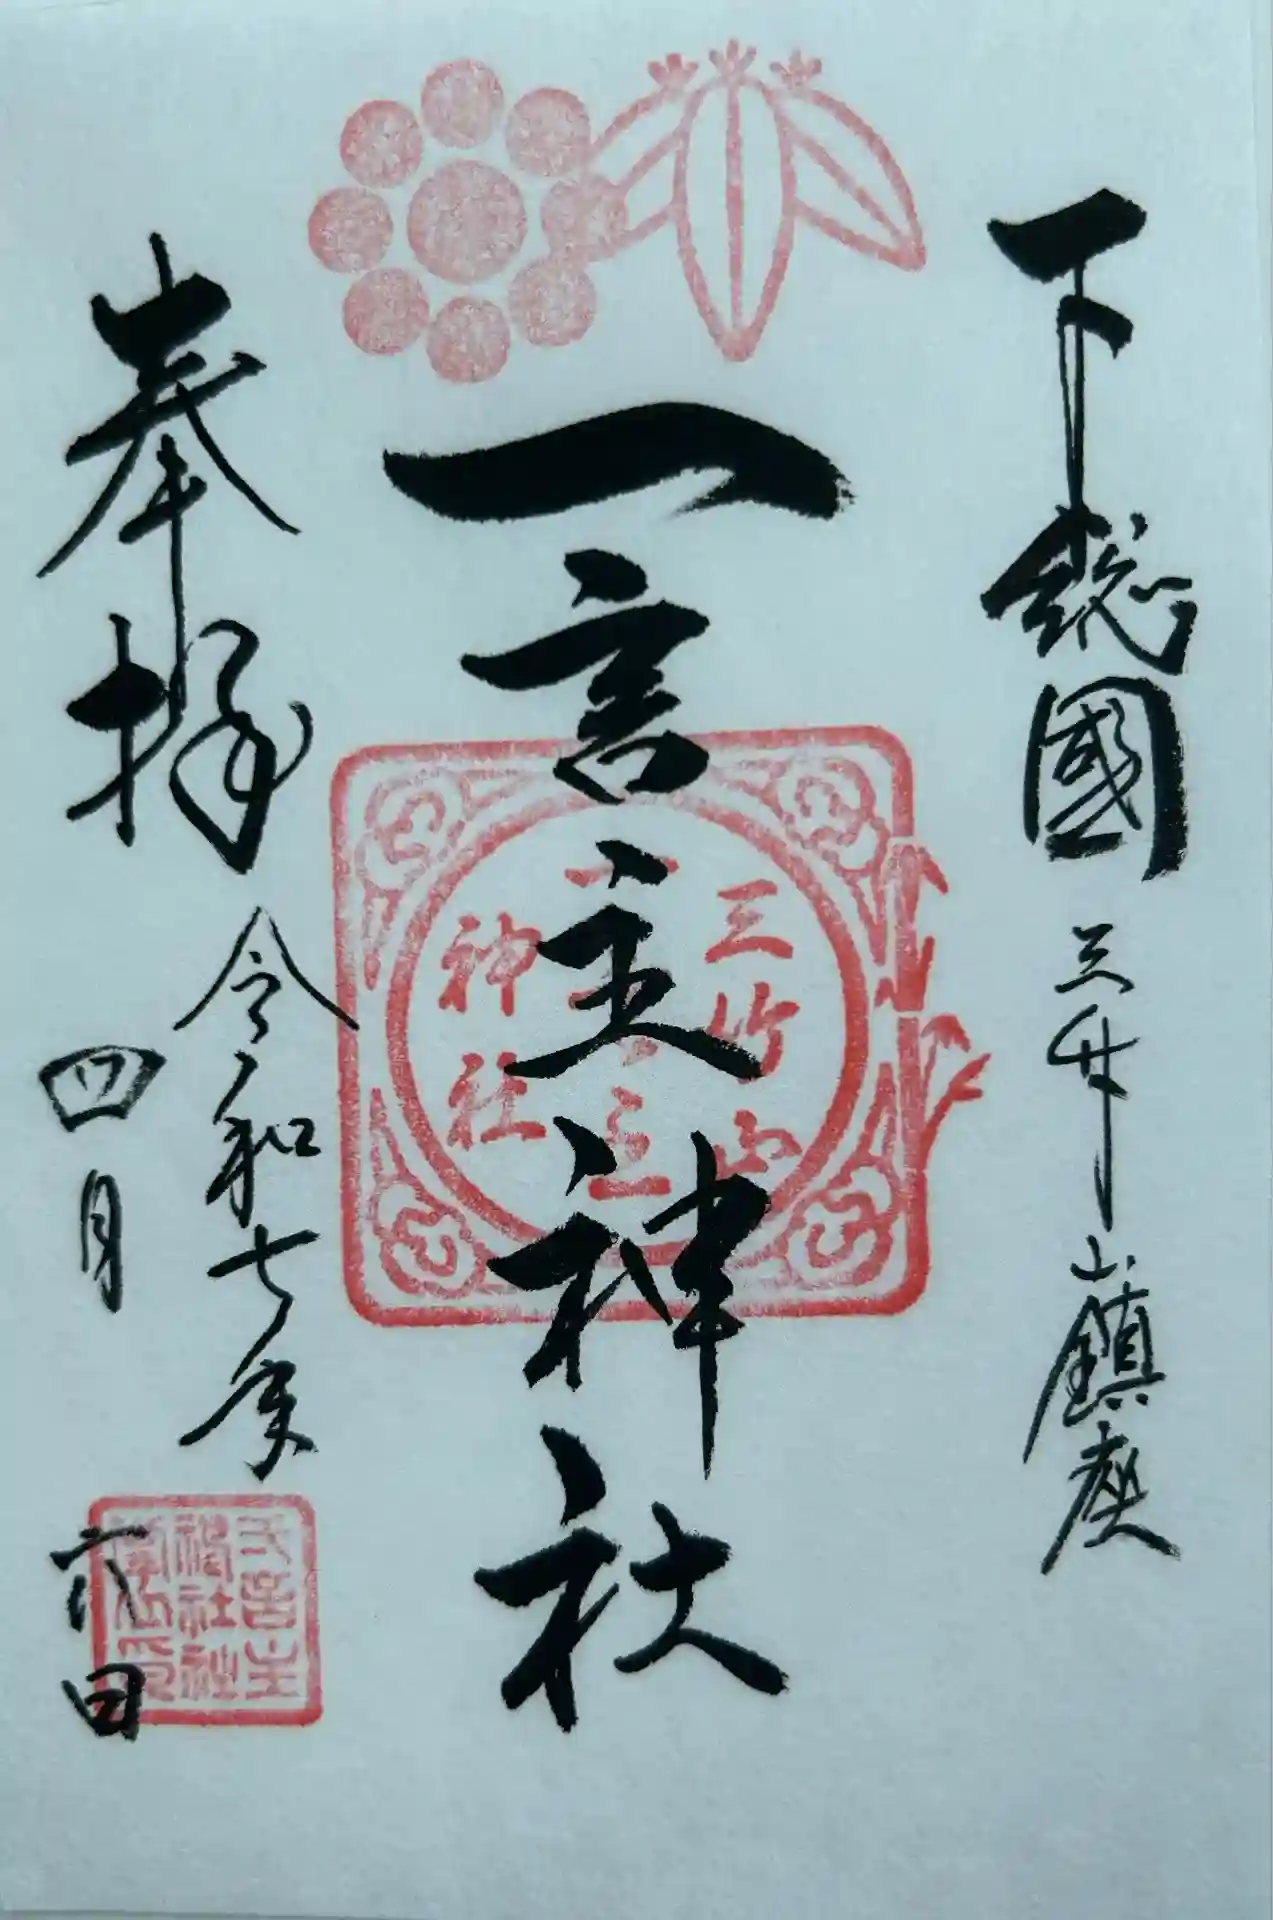 下総國三竹山鎮座
一言主神社
三竹山
一言主
神社
奉拝
令和七年
四月六日
一言主
神社社